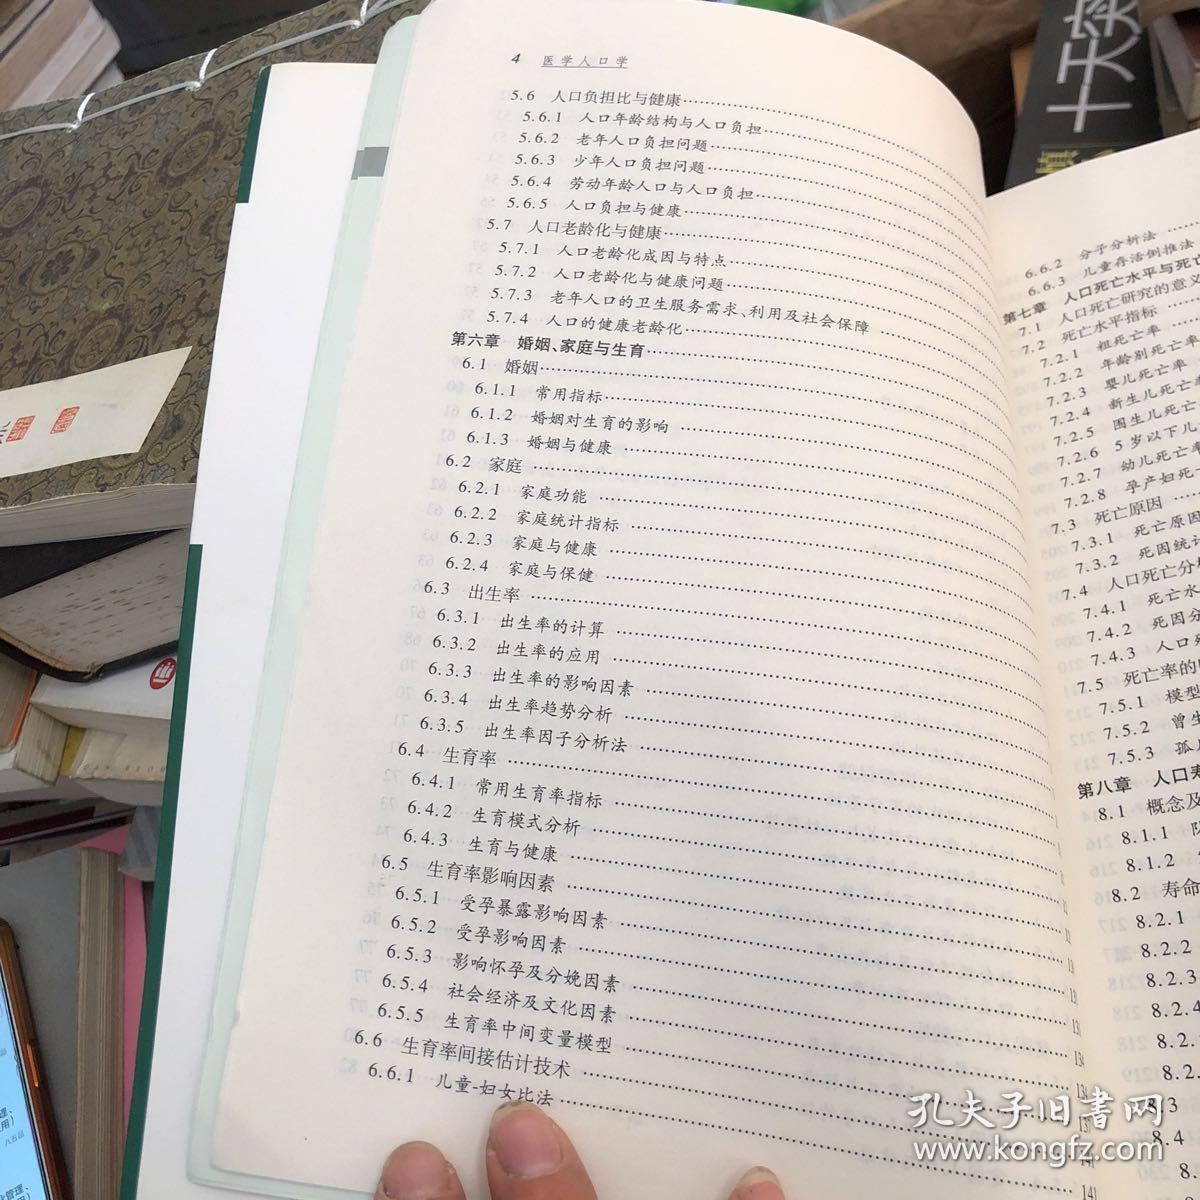 4 医学人口学
5.6 人口负担比与健康
5.6.1 人口年龄结构与人口负担
5.6.2 老年人口负担问题
5.6.3 少年人口负担问题
5.6.4 劳动年龄人口与人口负担
5.6.5 人口负担与健康
5.7 人口老龄化与健康
5.7.1 人口老龄化成因与特点
5.7.2 人口老龄化与健康问题
5.7.3 老年人口的卫生服务需求、利用及社会保障
5.7.4 人口的健康老龄化
第六章 婚姻、家庭与生育
6.1 婚姻
6.1.1 常用指标
6.1.2 婚姻对生育的影响
6.1.3 婚姻与健康
6.2 家庭
6.2.1 家庭功能
6.2.2 家庭统计指标
6.2.3 家庭与健康
6.2.4 家庭与保健
6.3 出生率
6.3.1 出生率的计算
6.3.2 出生率的应用
6.3.3 出生率的影响因素
6.3.4 出生率趋势分析
6.3.5 出生率因子分析法
6.4 生育率
6.4.1 常用生育率指标
6.4.2 生育模式分析
6.4.3 生育与健康
6.5 生育率影响因素
6.5.1 受孕暴露影响因素
6.5.2 受孕影响因素
6.5.3 影响怀孕及分娩因素
6.5.4 社会经济及文化因素
6.5.5 生育率中间变量模型
6.6 生育率间接估计技术
6.6.1 儿童-妇女比法
6.6.2 分子分析法
6.6.3 儿童存活倒推法
第七章 人口死亡水平与死亡
7.1 人口死亡研究的意义
7.2 死亡水平指标
7.2.1 粗死亡率
7.2.2 年龄别死亡率
7.2.3 婴儿死亡率
7.2.4 新生儿死亡率
7.2.5 围生儿死亡
7.2.6 5岁以下儿
7.2.7 幼儿死亡率
7.2.8 孕产妇死
7.3 死亡原因
7.3.1 死亡原因
7.3.2 死因统计
7.4 人口死亡分析
7.4.1 死亡水
7.4.2 死因分
7.4.3 人口死
7.5 死亡率的
7.5.1 模型
7.5.2 曾生
7.5.3 孤儿
第八章 人口寿
8.1 概念及
8.1.1
8.1.2
8.2 寿命
8.2.1
8.2.2
8.2.3
8.2.4
8.2.
8.2.
8.3
8.4
孔夫子旧书网
www.kongfz.com
十天突